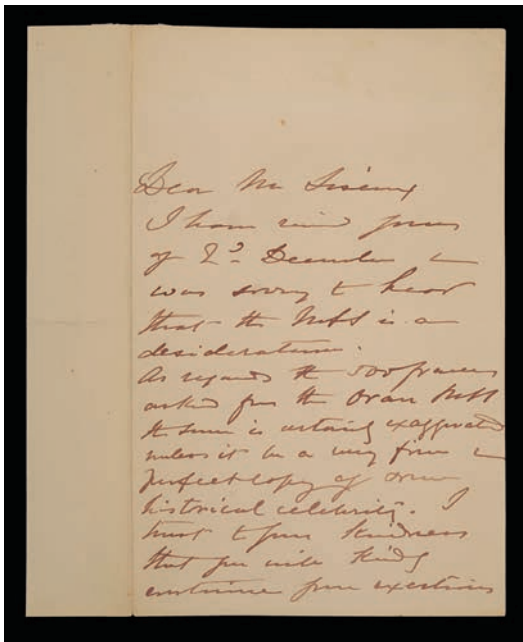 Dear Mr
I have rec'd yours
of 2d December &
was sorry to hear
that the MSS is a
desideratum.
As regards the 500 francs
asked for the Oran MSS
the sum is certainly exaggerated
unless it be a very fine &
perfect copy of some
historical celebrity. I
trust to your kindness
that you will kindly
continue your exertions